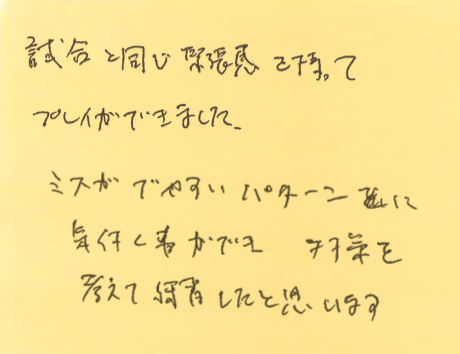 試合と同じ緊張感を持って
プレイができました。
ミスがでやすいパターンに
気付く事ができ 対策を
考えて したと思います